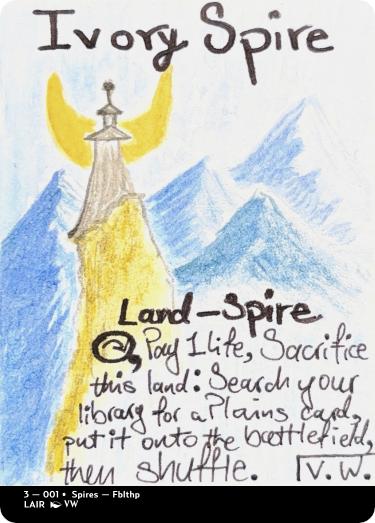 Ivory Spire
Land-Spire
, Pay 1 life, Sacrifice
this land: Search your
library for a Plains card,
put it onto the battlefield,
then shuffle.
V.W.
3 — 001 • Spires — Fblthp
LAIR VW